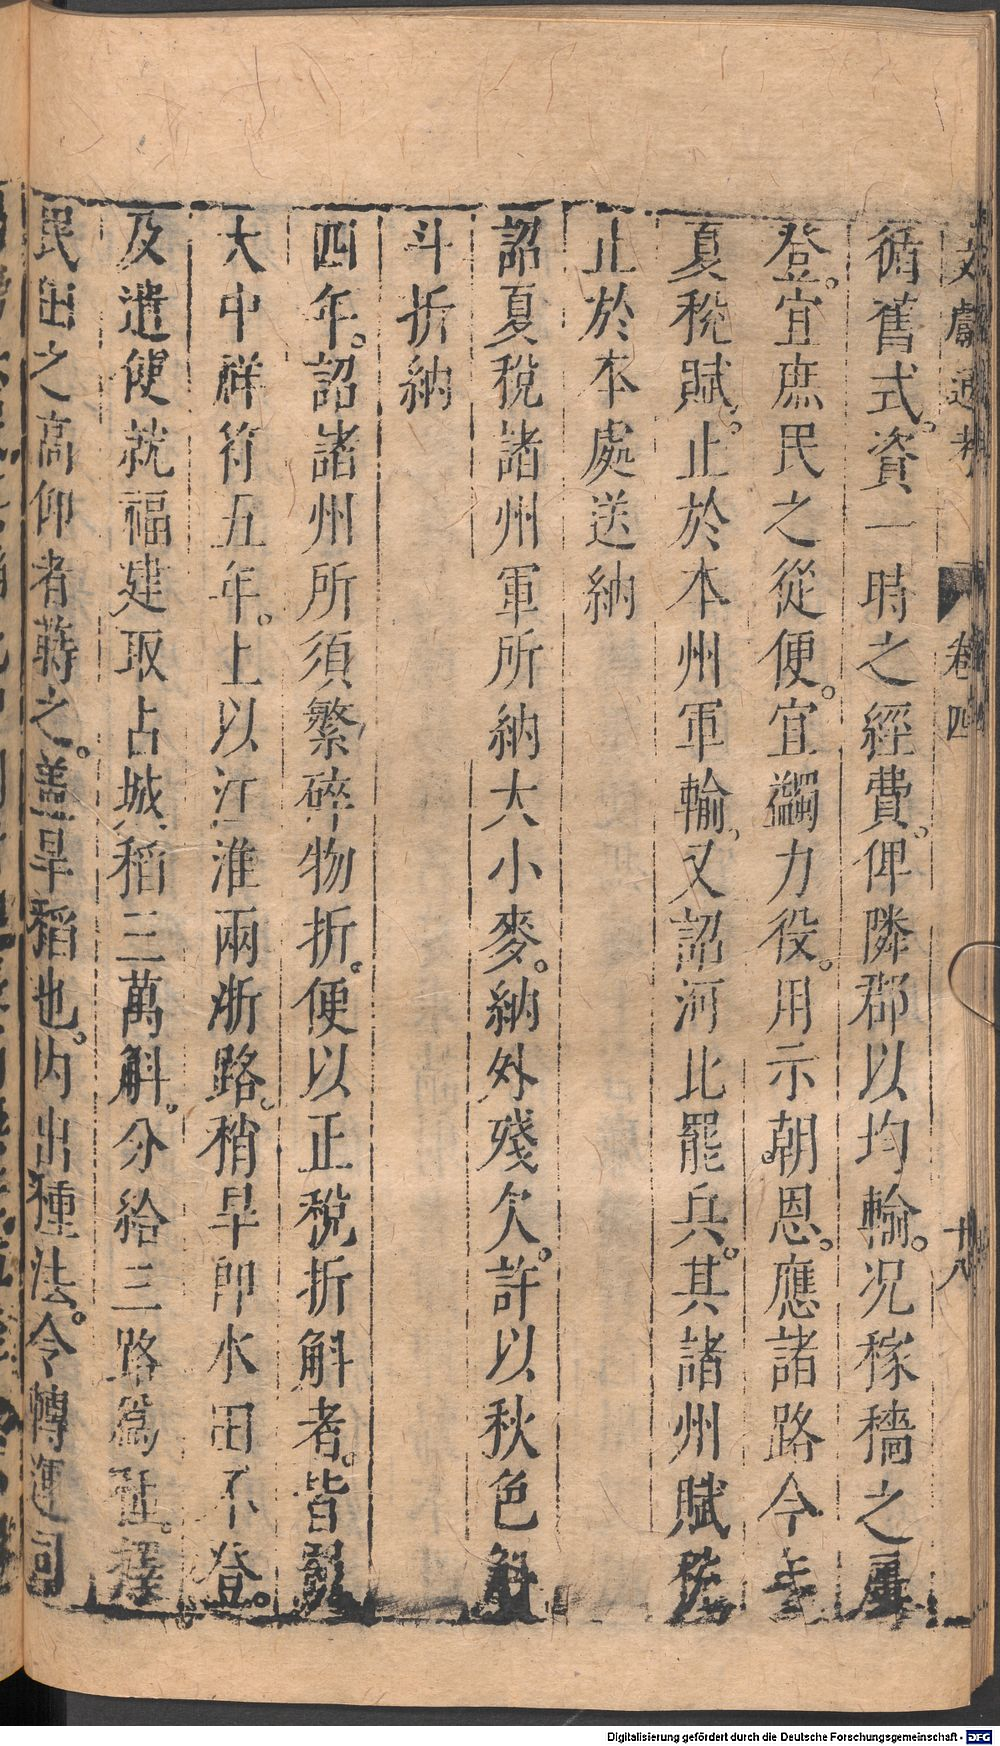 文獻通考 卷四 十八
循舊式。資一時之經費。俾隣郡以均輸。况稼穡之屢
登。宜庶民之從便。宜蠲力役。用示朝恩。應諸路今年
夏稅賦。止於本州軍輸。又詔河北罷兵。其諸州賦稅
止於本處送納
詔夏稅諸州軍所納大小麥。納外殘欠。許以秋色斛
斗折納
四年。詔諸州所須繁碎物折。便以正稅折斛者。皆罷
大中祥符五年。上以江淮兩浙路。稍旱卽水田不登。
及遣使就福建取占城稻三萬斛。分給三路爲種。擇
民田之高仰者蒔之。蓋旱稻也。内出種法。令轉運司
Digitalisierung gefördert durch die Deutsche Forschungsgemeinschaft - DFG